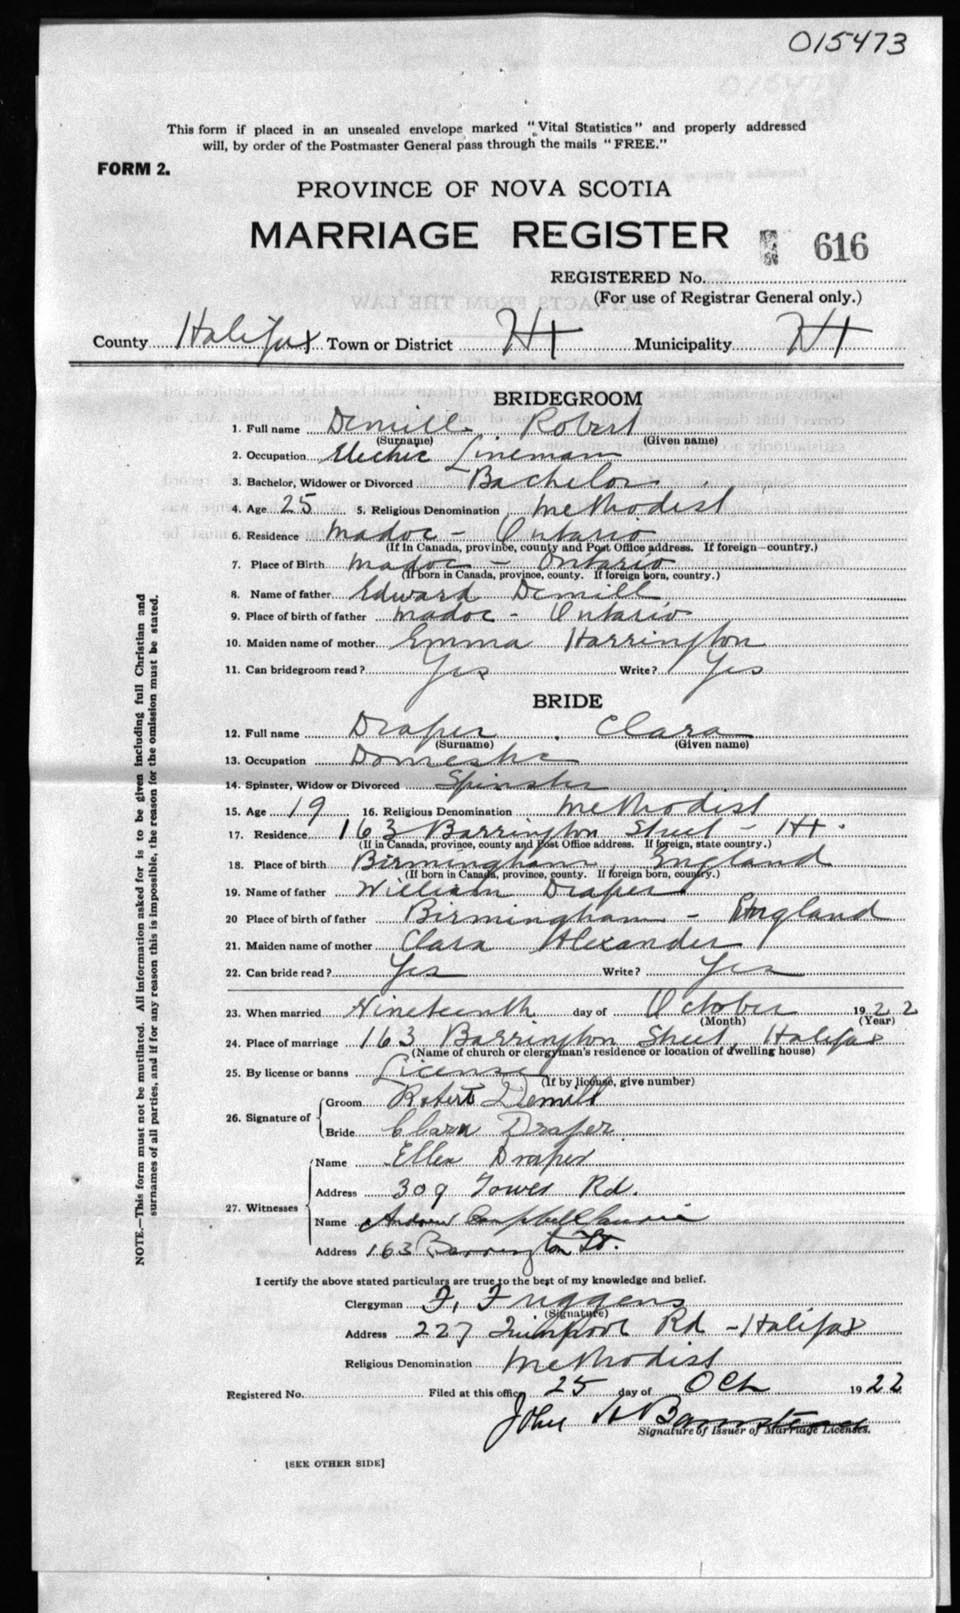 015473
This form if placed in an unsealed envelope marked "Vital Statistics" and properly addressed
will, by order of the Postmaster General pass through the mails "FREE."
FORM 2.
PROVINCE OF NOVA SCOTIA
MARRIAGE REGISTER 616
REGISTERED No.
(For use of Registrar General only.)
County Halifax Town or District Hx Municipality Hx
BRIDEGROOM
1. Full name Demill, Robert
(Surname) (Given name)
2. Occupation Electric Lineman
3. Bachelor, Widower or Divorced Bachelor
4. Age 25 5. Religious Denomination Methodist
6. Residence Madoc - Ontario
(If in Canada, province, county and Post Office address. If foreign—country.)
7. Place of Birth Madoc - Ontario
(If born in Canada, province, county. If foreign born, country.)
8. Name of father Edward Demill
9. Place of birth of father Madoc - Ontario
10. Maiden name of mother Emma Harrington
11. Can bridegroom read? Yes Write? Yes
BRIDE
12. Full name Draper, Clara
(Surname) (Given name)
13. Occupation Domestic
14. Spinster, Widow or Divorced Spinster
15. Age 19 16. Religious Denomination Methodist
17. Residence 163 Barrington Street - Hx.
(If in Canada, province, county and Post Office address. If foreign, state country.)
18. Place of birth Birmingham, England
(If born in Canada, province, county. If foreign born, country.)
19. Name of father William Draper
20 Place of birth of father Birmingham - England
21. Maiden name of mother Clara Alexander
22. Can bride read? Yes Write? Yes
23. When married Nineteenth day of October 1922
(Month) (Year)
24. Place of marriage 163 Barrington Street, Halifax
(Name of church or clergyman's residence or location of dwelling house)
25. By license or banns License
(If by license, give number)
26. Signature of Groom Robert Demill
Bride Clara Draper
27. Witnesses Name Ellen Draper
Address 309 Tower Rd.
Name Andrew Campbell
Address 163 Barrington St.
I certify the above stated particulars are true to the best of my knowledge and belief.
Clergyman F. Friggens
(Signature)
Address 227 Quinpool Rd - Halifax
Religious Denomination Methodist
Registered No. Filed at this office 25 day of Oct 1922
John H Barnstead
Signature of Issuer of Marriage Licenses.
[SEE OTHER SIDE]
NOTE.—This form must not be mutilated. All information asked for is to be given including full Christian and
surnames of all parties, and if for any reason this is impossible, the reason for the omission must be stated.